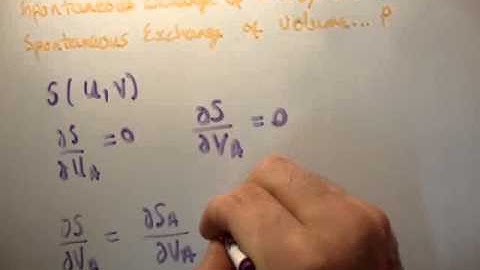 Spontaneous Exchange of
Spontaneous Exchange of Volume... P
S(U,V)
∂S/∂U_A = 0 ∂S/∂V_A = 0
∂S/∂V_A = ∂S_A/∂V_A